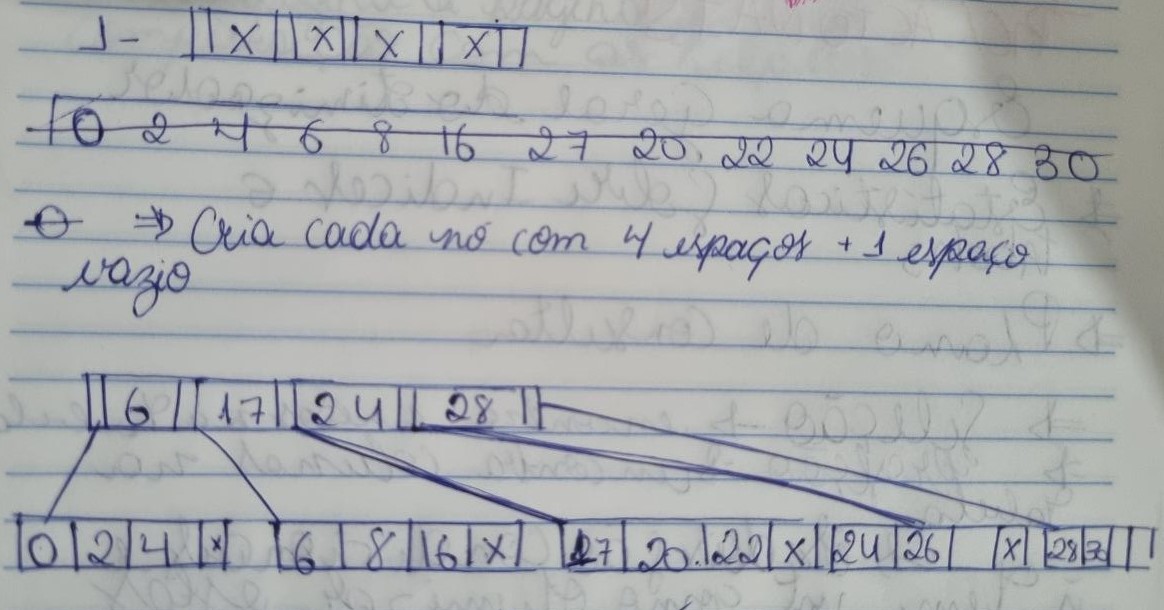 1- | | X | | X | | X | | X | |
0 2 4 6 8 16 27 20 22 24 26 28 30
⇒ Cria cada nó com 4 espaços + 1 espaço
vazio
| | 6 | | 17 | | 24 | | 28 | |
| 0 | 2 | 4 | x | | 6 | 8 | 16 | X | | 27 | 20 | 22 | X | | 24 | 26 | | X | | 28 | 30 | | |